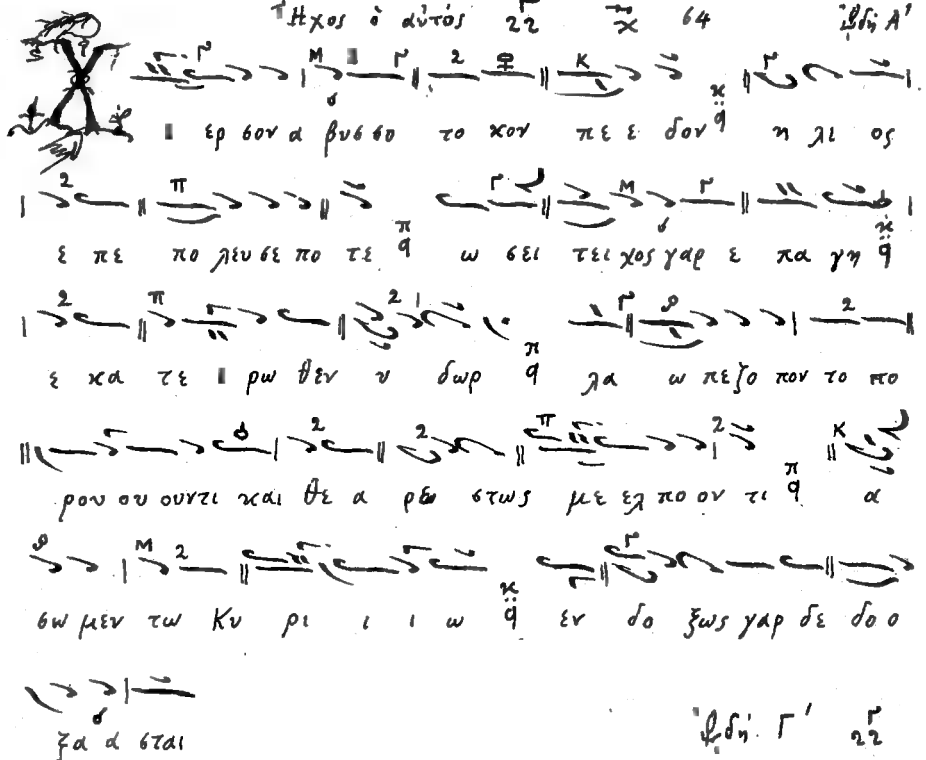 Ἦχος ὁ αὐτός 64 ᾠδή Α'
Χ ερ σον α βυσ σο το κον πε ε δον η λι ος
ε πε πο λευ σε πο τε ω σει τει χος γαρ ε πα γη
ε κα τε ρω θεν υ δωρ λα ω πε ζο πον το πο
ρου ου ουντι και θε α ρε στως με ελ πο ον τι α
σω μεν τω Κυ ρι ι ι ω εν δο ξως γαρ δε δο ο
ξα α σται ᾠδή. Γ'